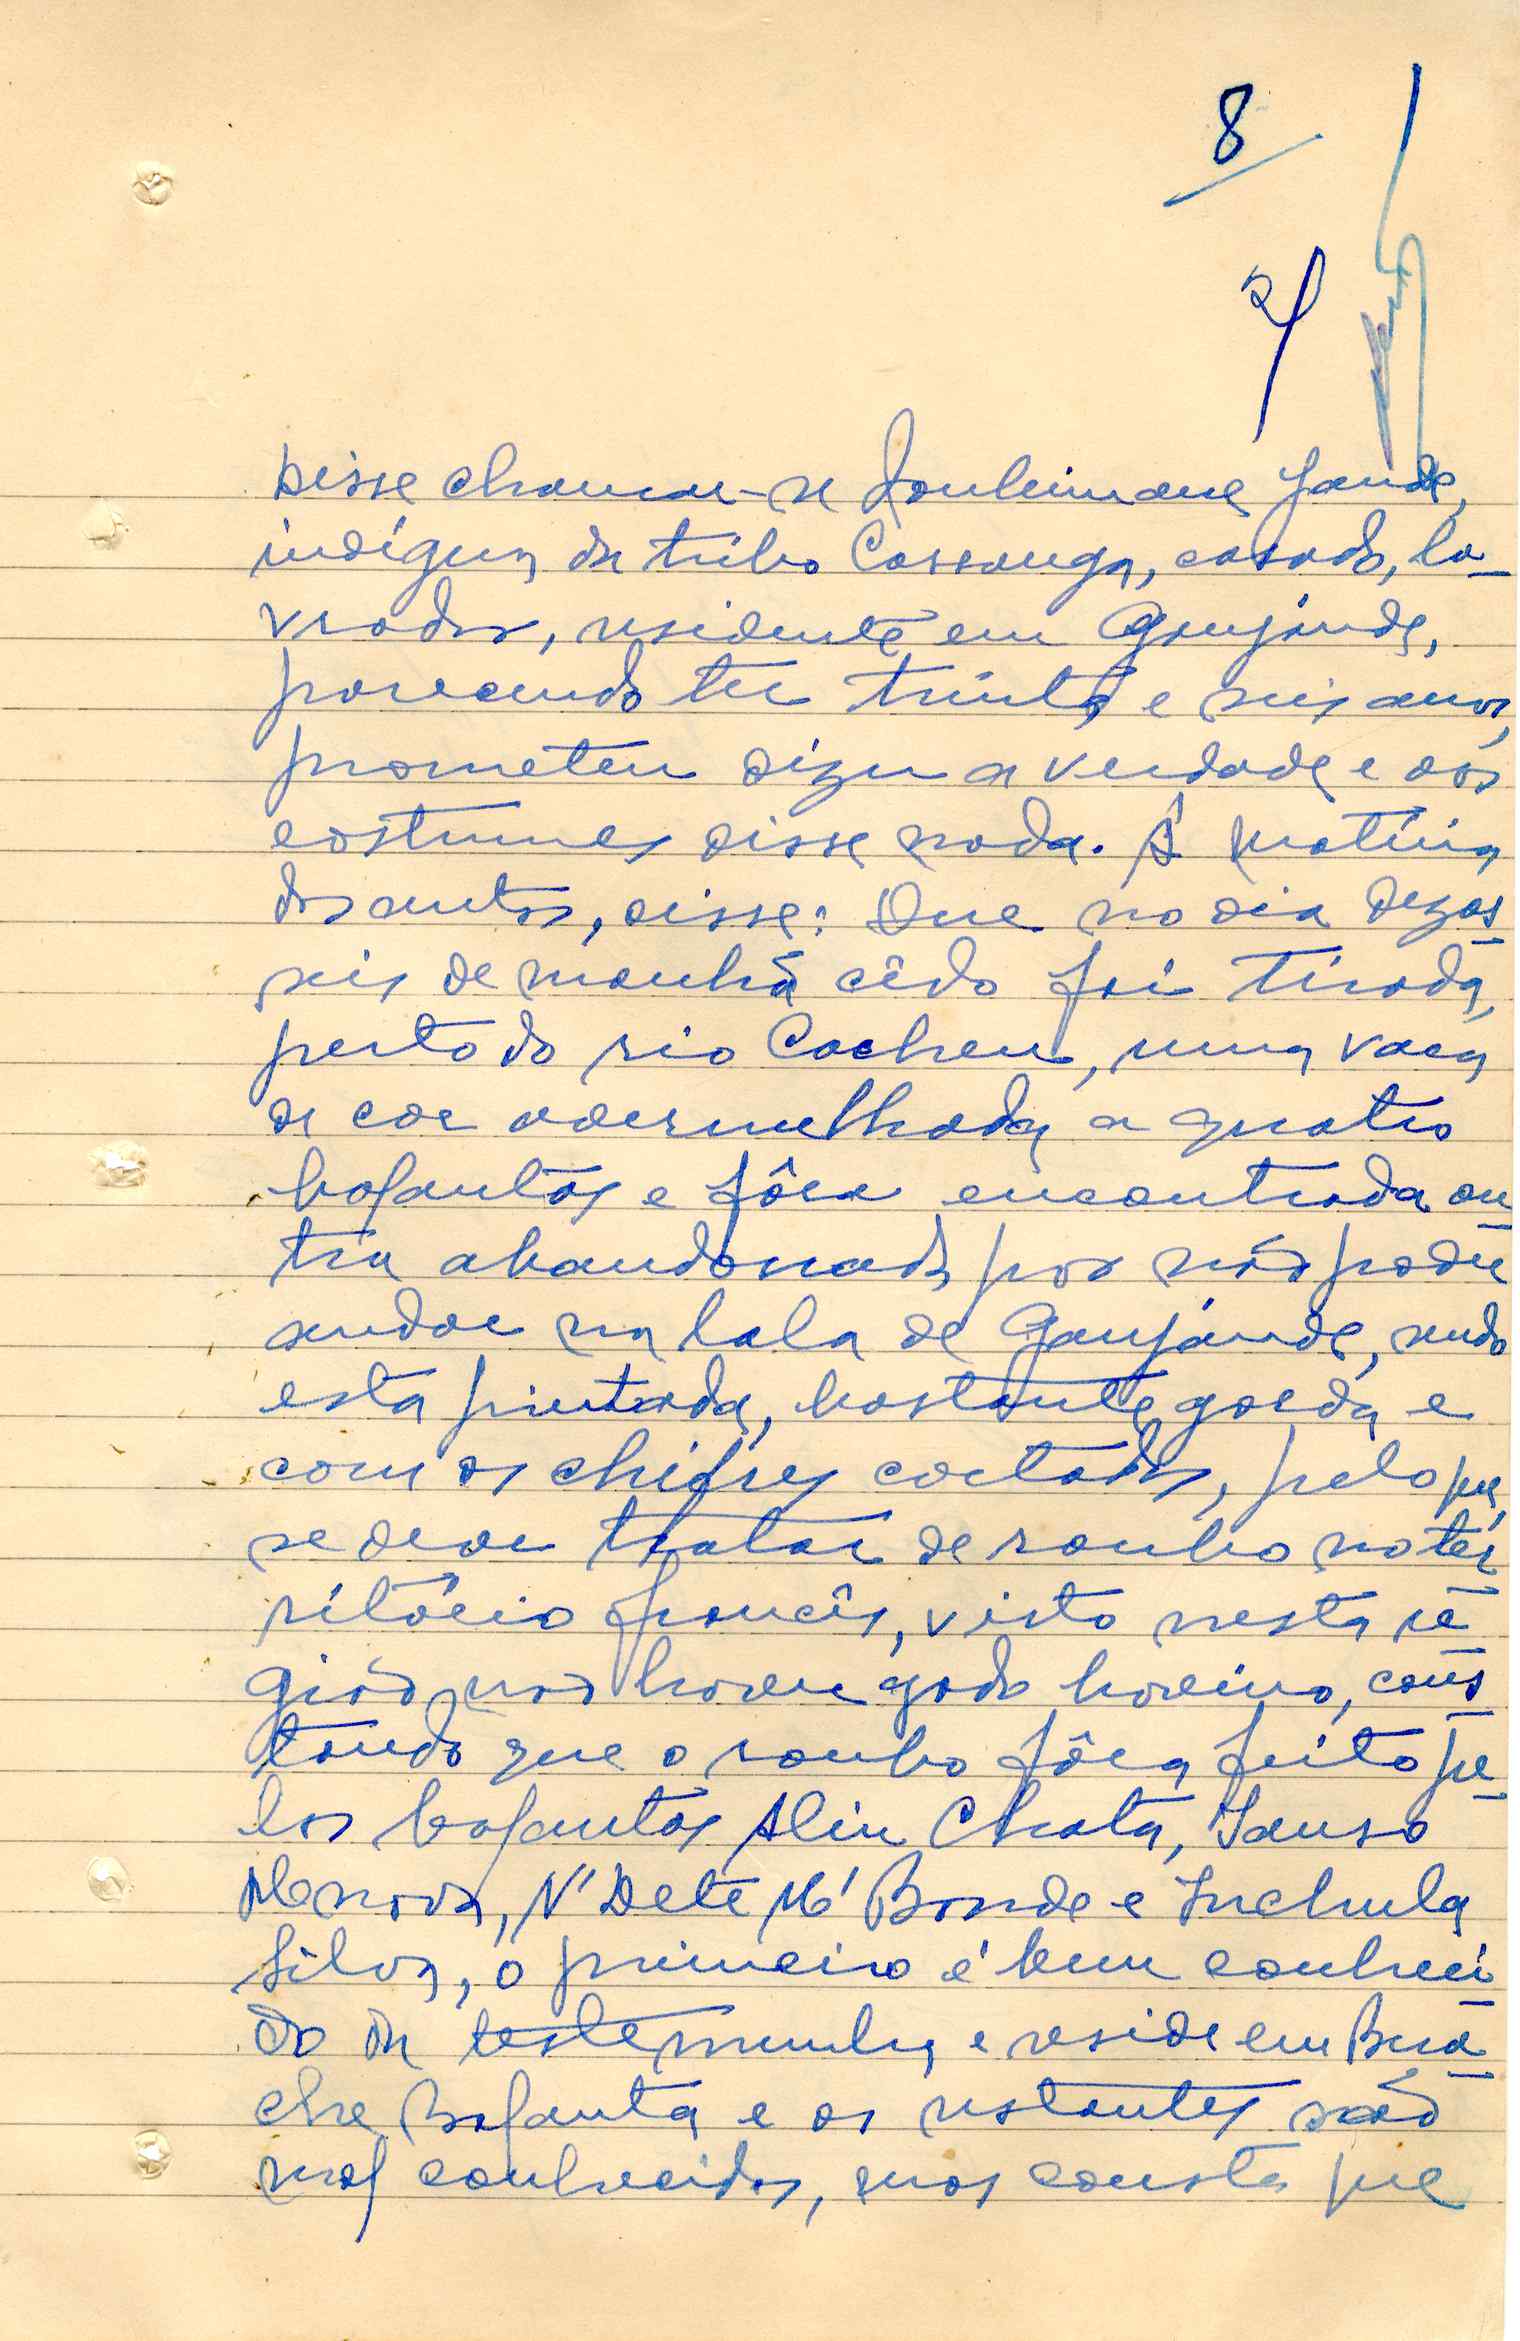 8
Disse chamar-se Souleimane Jande,
indígena da tribo Cassanga, casado, la-
vrador, residente em Ganjande,
parecendo ter trinta e seis anos,
prometeu dizer a verdade e aos
costumes disse nada. À matéria
dos autos, disse: Que no dia dezas-
seis de manhã cêdo foi tirada,
perto do rio Cacheu, uma vaca
de cor avermelhada a quatro
bafantas e fôra encontrada ou-
tra abandonada por não poder
andar na lala de Ganjande, sendo
esta pintada, bastante gorda e
com os chifres cortados, pelo que
se deve tratar de roubo no ter-
ritório francês, visto nesta re-
gião não haver gado bovino, cons-
tando que o roubo fôra feito pe-
los bafantas Aliu Chata, Sanso
N'Dete M'Bonde e Inchula
Silva, o primeiro é bem conheci-
do da testemunha e reside em
Bafanta e os restantes são
mal conhecidos, mas consta que